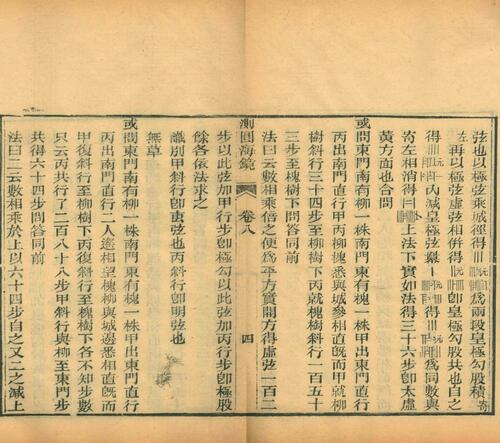 弦也以極弦乘城徑得爲兩段皇極勾股積寄
左再以極弦虛弦相併得即皇極勾股共也自之
得內減皇極弦冪得爲同數與
寄左相消得上法下實如法得三十六步即太虛
黃方面也合問
或問東門南有柳一株南門東有槐一株甲出東門直行
丙出南門直行甲丙槐柳悉與城參相直旣而甲就柳
樹斜行三十四步至柳樹下丙就槐樹斜行一百五十
三步至槐樹下問答同前
法曰云數相乘倍之便爲平方實開方得虛弦一百二
步以此弦加甲行步即極勾以此弦加丙行步即極股
餘各依法求之
識別甲斜行即叀弦也丙斜行即明弦也
無草
或問東門南有柳一株南門東有槐一株甲出東門直行
丙出南門直行二人遙相望槐柳與城邊悉相直旣而
甲復斜行至柳樹下丙復斜行至槐樹下各不知步數
只云丙共行了二百八十八步甲斜行與柳至東門步
共得六十四步問答同前
法曰二云數相乘於上以六十四步自之又二之減上
測圓海鏡
卷八
四